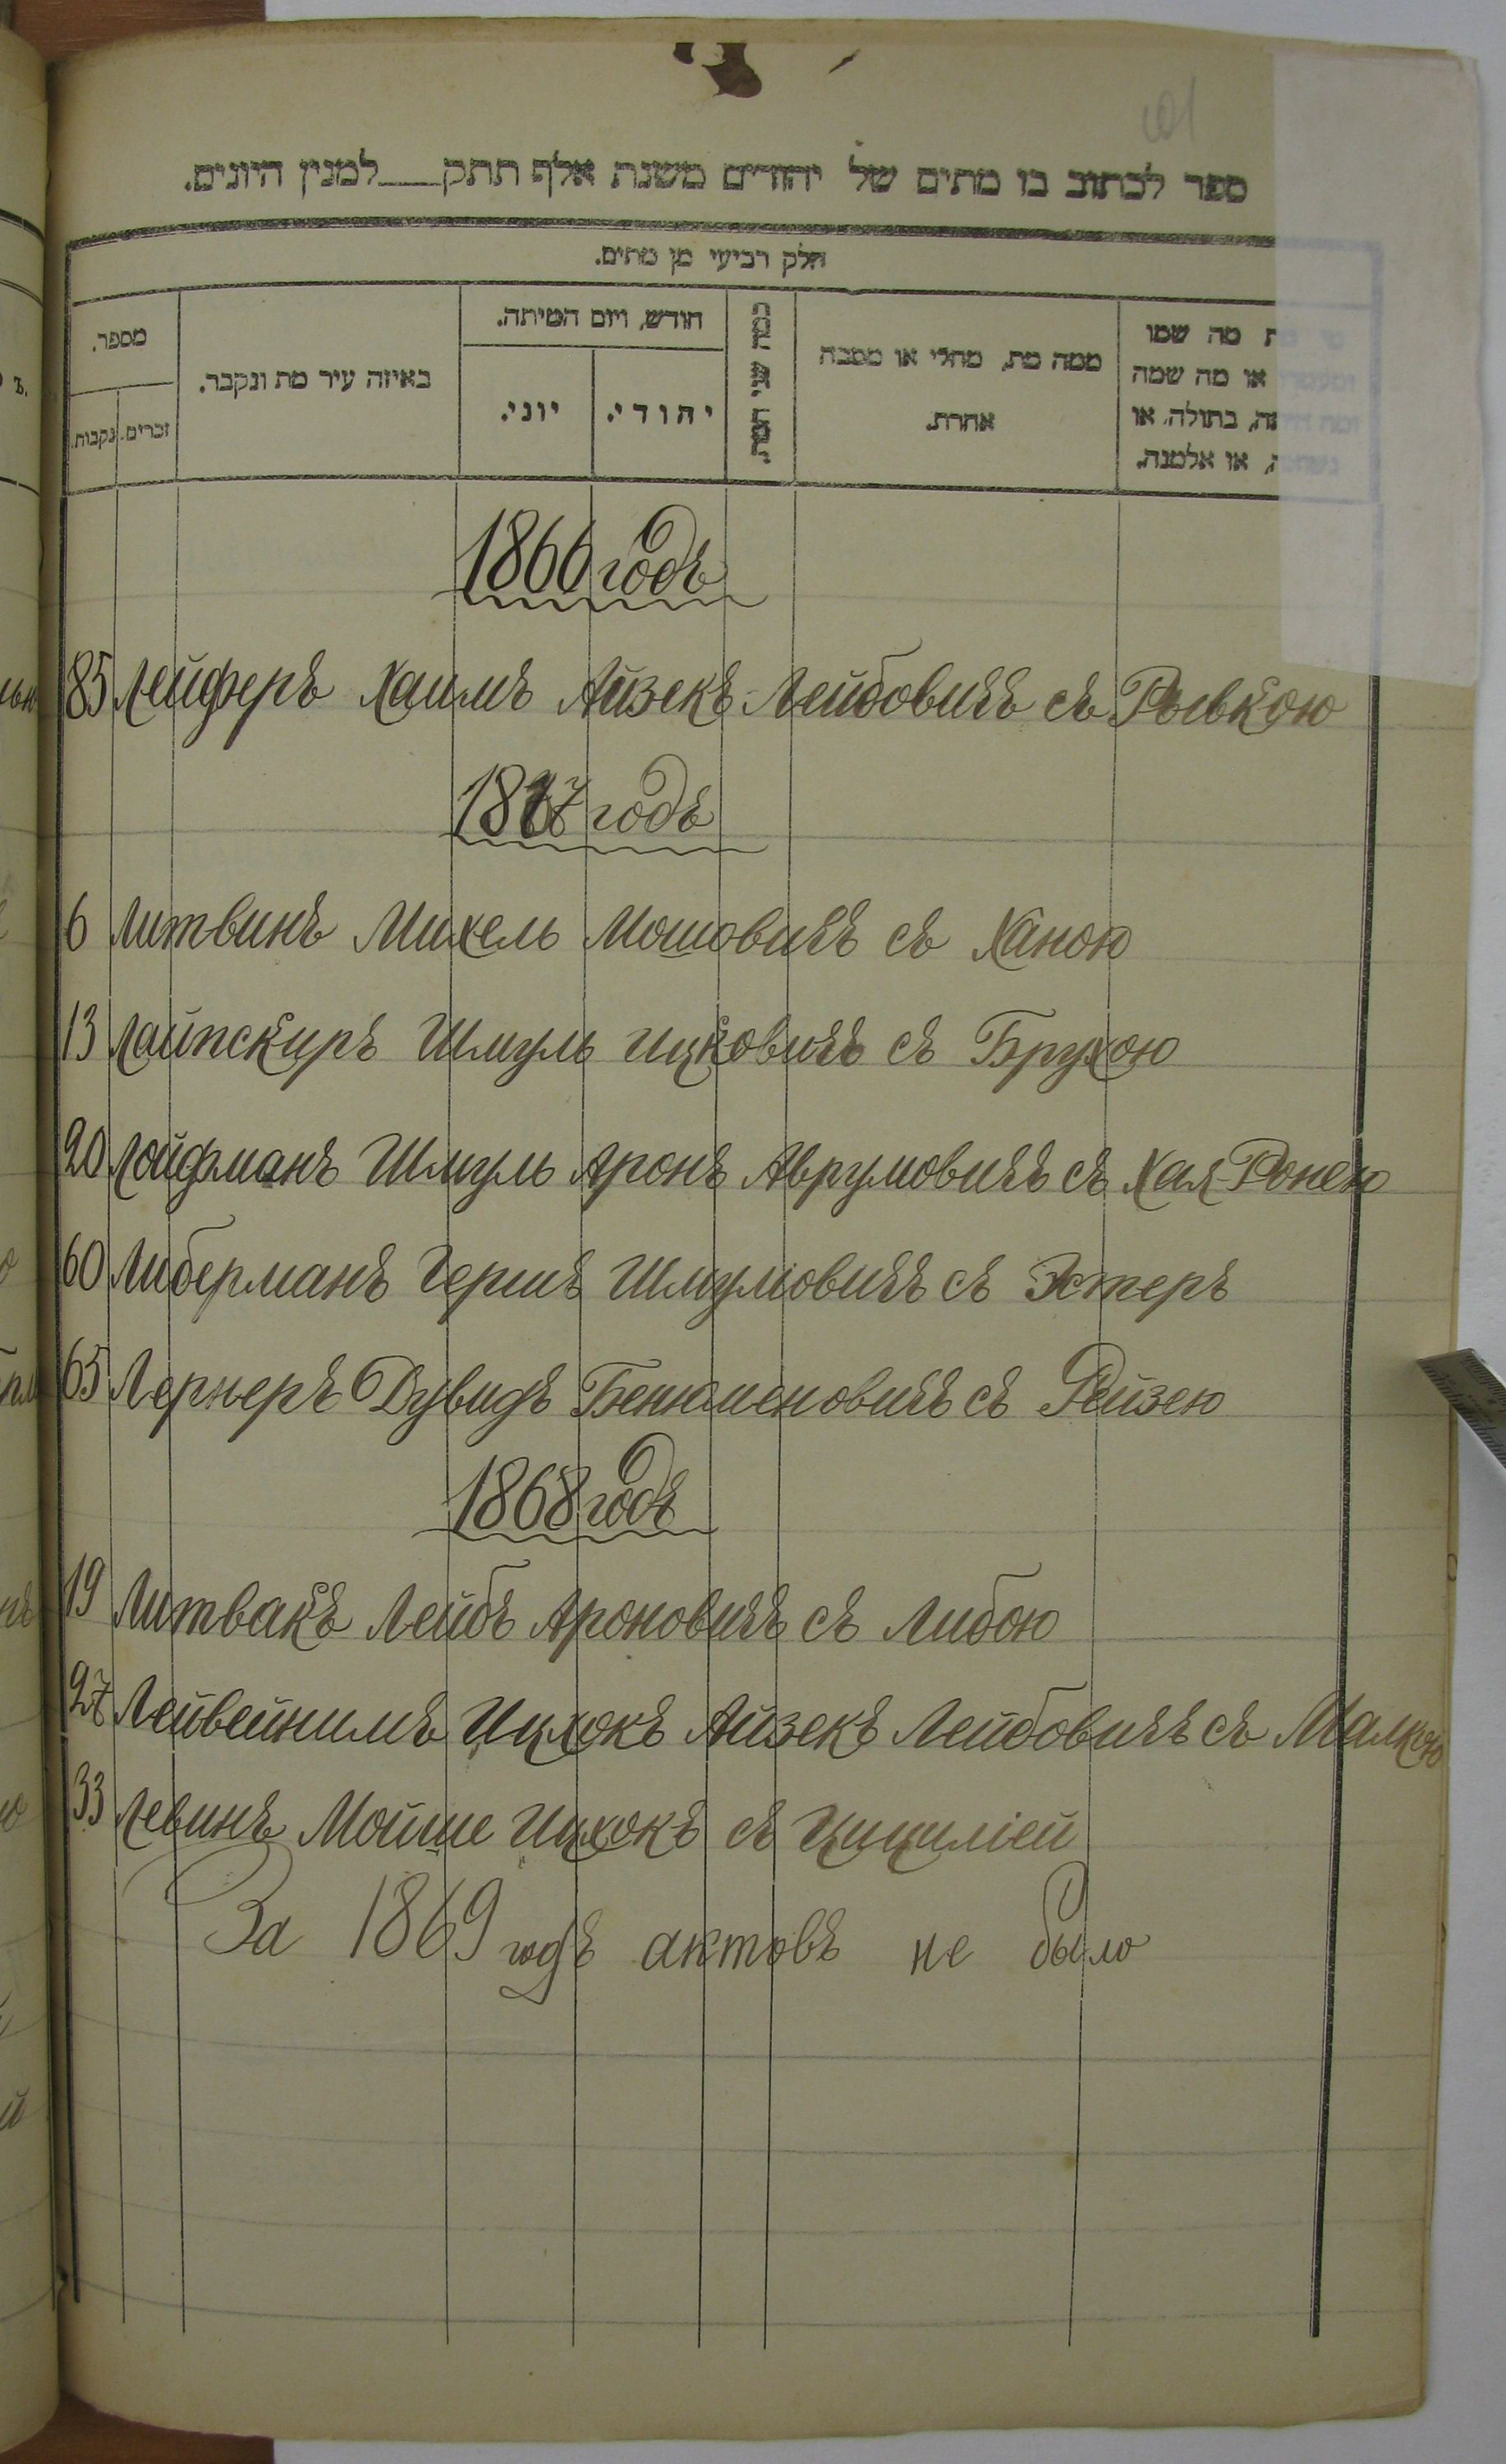 ספר לכתוב בו מתים של יהודים משנת אלף תתק למנין היונים.
חלק רביעי מן מתים.
מספר.
נקבות. זכרים.
באיזה עיר מת ונקבר.
חודש, ויום המיתה.
יוני. יהודי.
כמה שני המת.
ממה מת, מחלי או מסבה
אחרת.
מת מה שמו
או מה שמה
בתולה, או
או אלמנה.
1866 годъ
85 Лейферъ Хаимъ Айзекъ Лейбовичъ съ Рывкою
1867 годъ
6 Литвинъ Михель Мошовичъ съ Ханою
13 Лайпскиръ Шмуль Ицковичъ съ Брухою
20 Лойфманъ Шмуль Аронъ Аврумовичъ съ Хая-Ронею
60 Либерманъ Гершъ Шмулювичъ съ Эстеръ
65 Лернеръ Дувидъ Бенюменовичъ съ Рейзею
1868 годъ
19 Литвакъ Лейбъ Ароновичъ съ Либою
27 Лейвейнимъ Ицхокъ Айзекъ Лейбовичъ съ Малкою
33 Левинъ Мойше Ицхокъ съ Цицилiей
За 1869 годъ актовъ не было